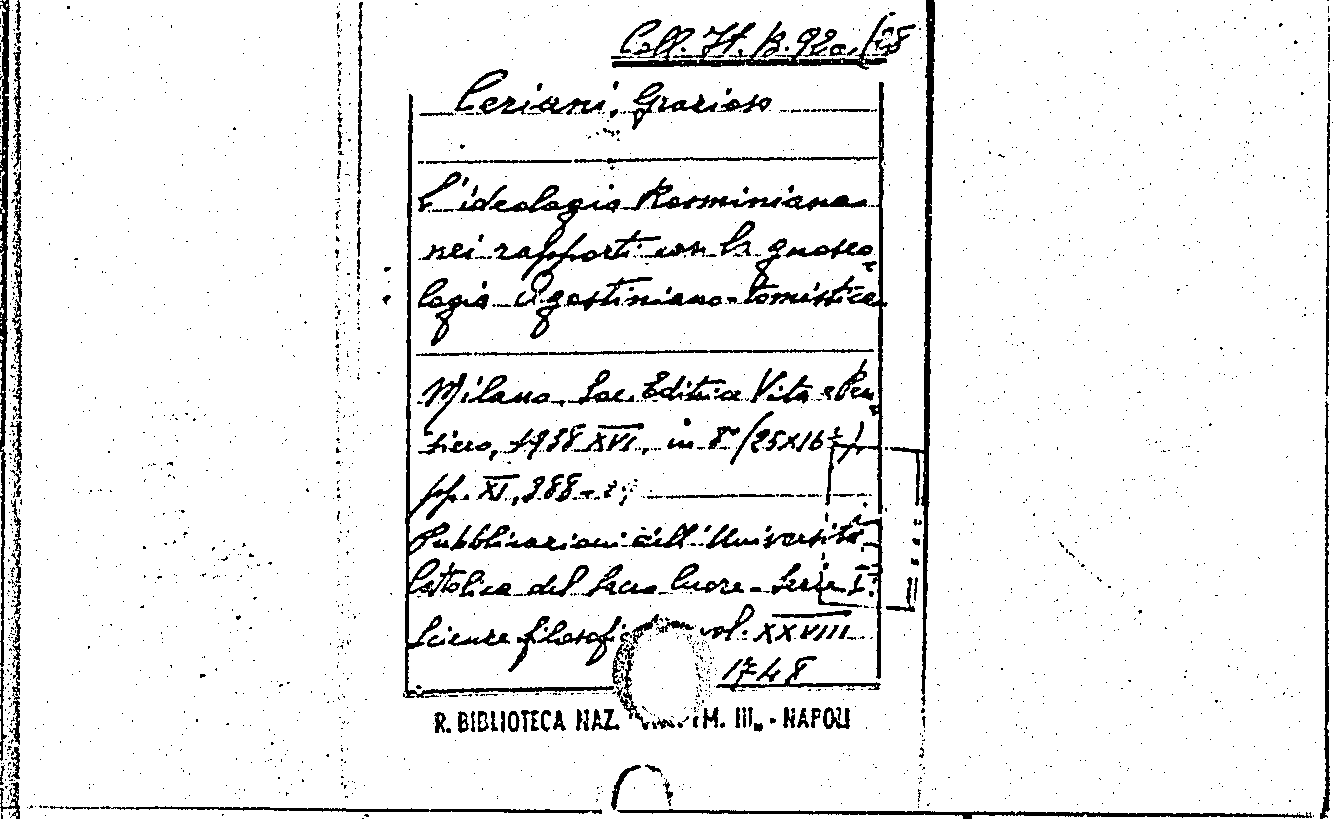 Coll. H. B. 92a. (28
Ceriani, Grazioso
L'ideologia Rosminiana
nei rapporti con la gnoseo-
logia Agostiniano-tomistica
Milano. Soc. Editrice Vita e Pen-
siero, 1938 XVI, in 8° (25x16½)
pp. XI, 388 -
Pubblicazioni dell'Università
Cattolica del Sacro Cuore - Serie Iª
Scienze vol. XXVIII
1748
R. BIBLIOTECA NAZ. EM. III„ - NAPOLI